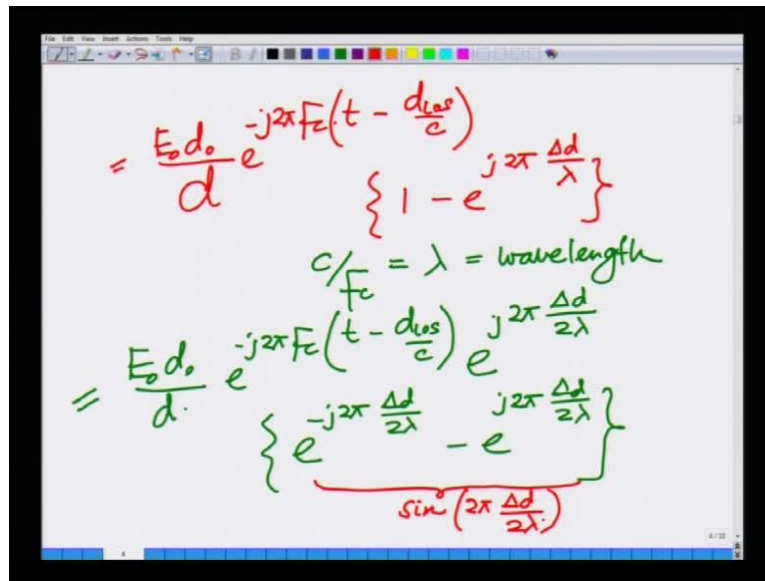 File Edit View Insert Actions Tools Help
= E₀d₀/d e^{-j2πFc(t - d_{Los}/c)}
{1 - e^{j2π Δd/λ}}
c/Fc = λ = wavelength
= E₀d₀/d. e^{-j2πFc(t - d_{Los}/c)} e^{j2π Δd/2λ}
{e^{-j2π Δd/2λ} - e^{j2π Δd/2λ}}
sin(2π Δd/2λ)
4